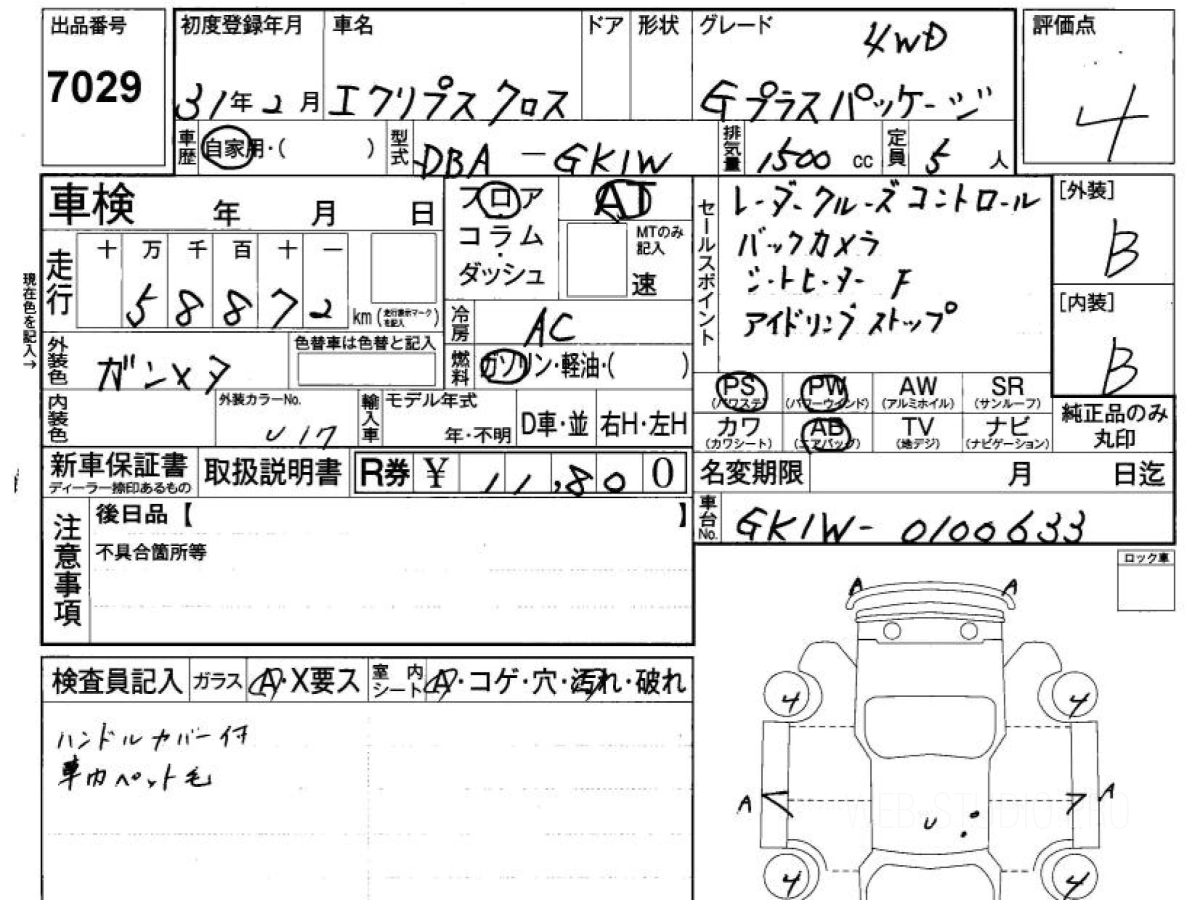 出品番号 初度登録年月 車名 ドア 形状 グレード 評価点
4WD
7029 31年2月 エクリプス クロス Gプラスパッケージ 4
車歴 自家用・( ) 型式 DBA-GK1W 排気量 1500 cc 定員 5 人
車検 年 月 日 フロア AT セールスポイント レーダークルーズコントロール [外装]
コラム MTのみ記入 バックカメラ B
ダッシュ 速 シートヒーター F
走行 十 万 千 百 十 一 アイドリングストップ [内装]
58872 km (走行表示マークを記入) 冷房 AC B
現在色を記入→
外装色 ガンメタ 色替車は色替と記入 燃料 ガソリン・軽油・( )
PS (パワステ) PW (パワーウインド) AW (アルミホイル) SR (サンルーフ)
内装色 外装カラーNo. U17 輸入車 モデル年式 年・不明 D車・並 右H・左H
カワ (カワシート) AB (エアバッグ) TV (地デジ) ナビ (ナビゲーション) 純正品のみ丸印
新車保証書 ディーラー捺印あるもの 取扱説明書 R券 ¥ 11,800 名変期限 月 日迄
注意事項 後日品【 】 車台No. GK1W-0100633
不具合箇所等
ロック車
A A
検査員記入 ガラス A・X要ス 室内シート A・コゲ・穴・汚れ・破れ
4 4
ハンドルカバー付
車内ペット毛
A A
WEB-STUDIO
U
4 4